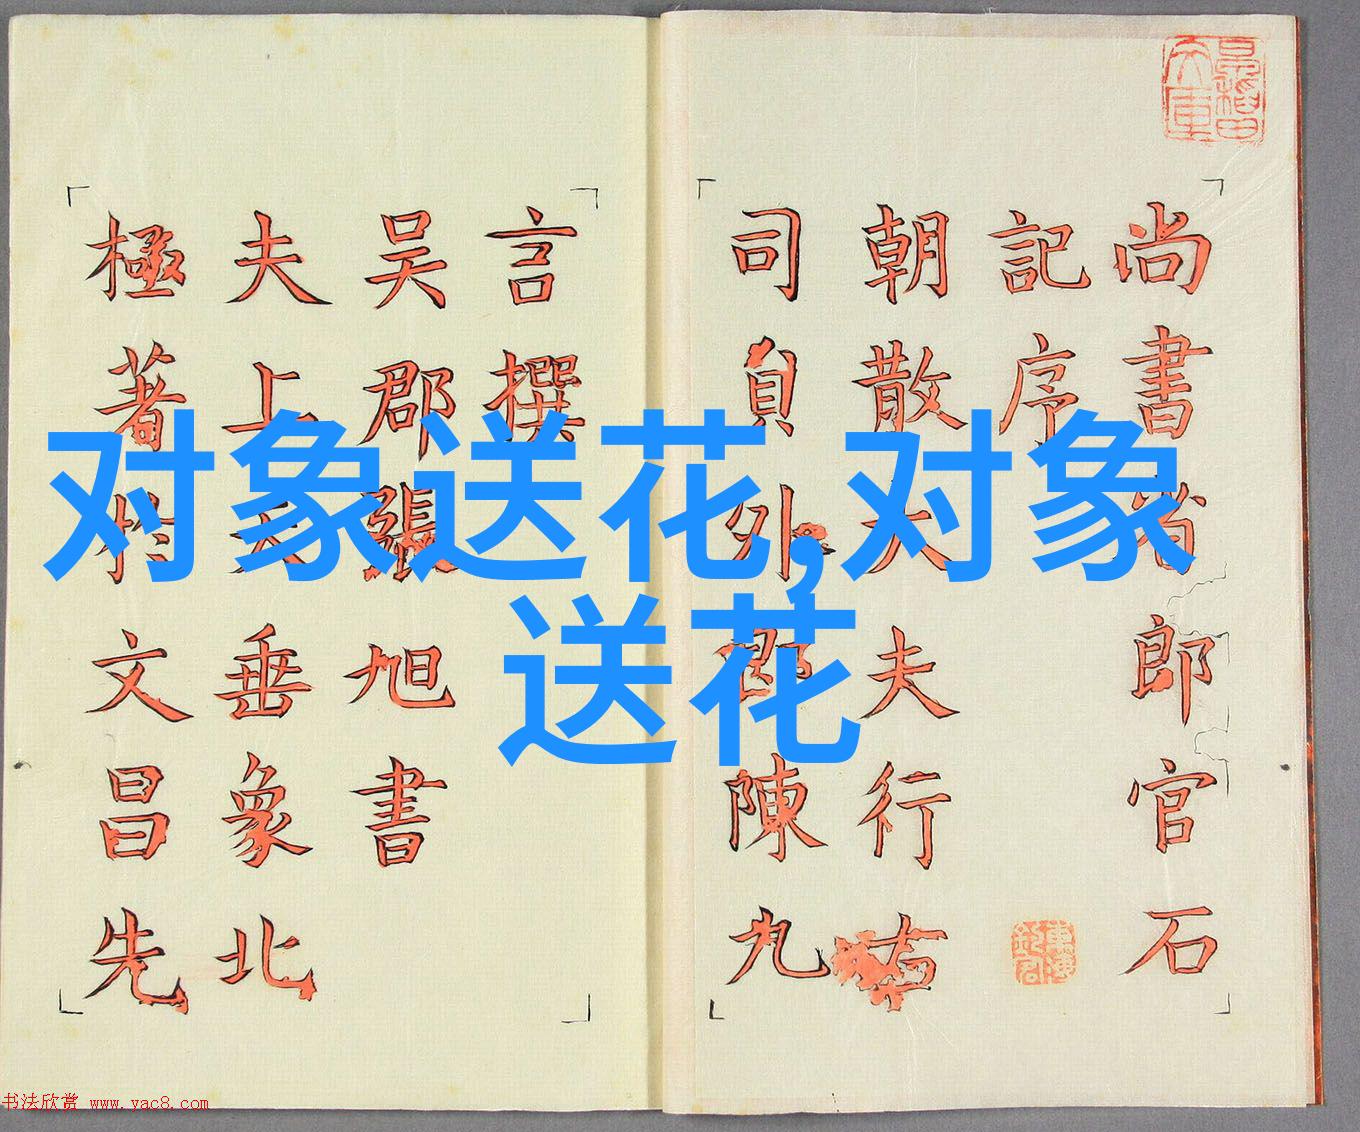 尚書省郎官石
記序
朝散大夫行右
司員外郎陳九
言撰
吴郡張旭書
夫上天垂象北
極著扵文昌先
对象送花,对象
送花
书法欣赏 www.yac8.com